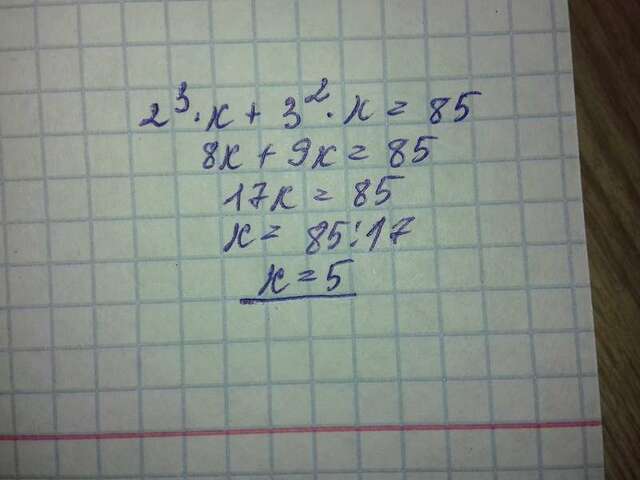 2³·x + 3²·x = 85
8x + 9x = 85
17x = 85
x = 85:17
x = 5